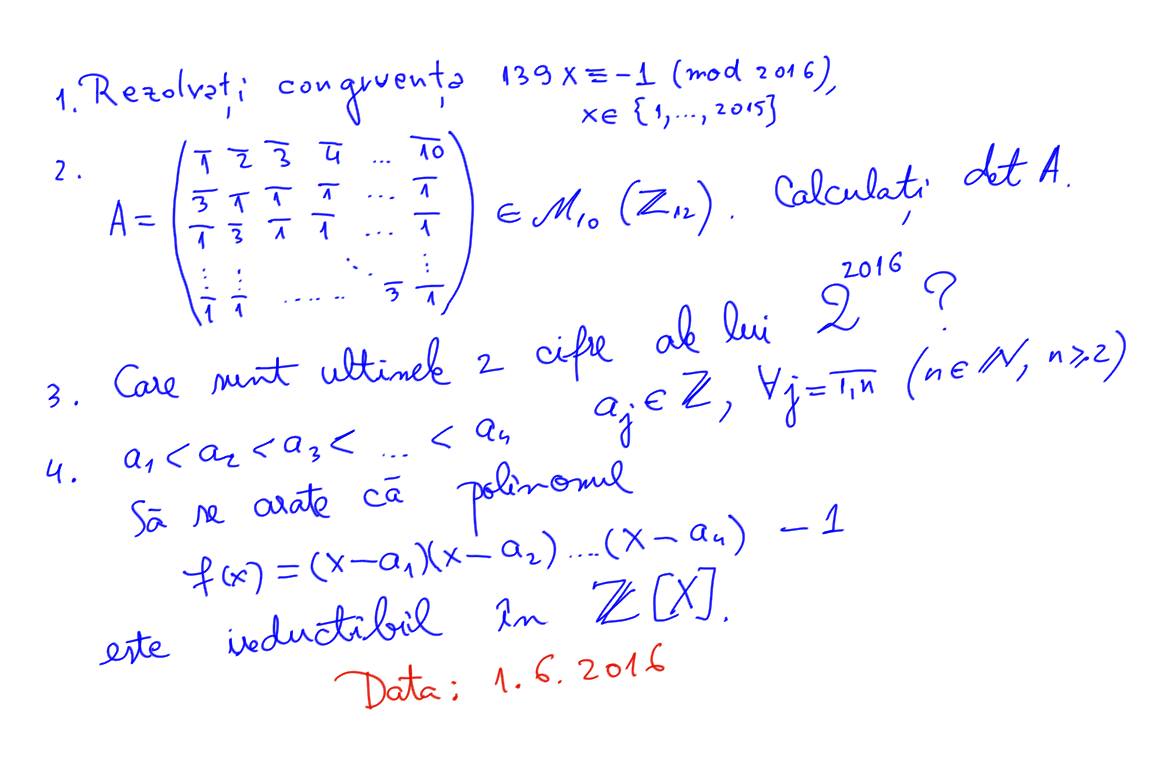 1. Rezolvați congruența 139 x ≡ -1 (mod 2016),
x∈ {1,..., 2015}
2. A = ( 1̅ 2̅ 3̅ 4̅ ... 1̅0̅
3̅ 1̅ 1̅ 1̅ ... 1̅
1̅ 3̅ 1̅ 1̅ ... 1̅
⋮ ⋮ ⋱ ⋮
1̅ 1̅ ...... 3̅ 1̅ ) ∈ M₁₀ (ℤ₁₂). Calculați det A.
3. Care sunt ultimele 2 cifre ale lui 2²⁰¹⁶ ?
4. a₁ < a₂ < a₃ < ... < aₙ aⱼ ∈ ℤ, ∀j = 1,n̅ (n∈ ℕ, n⩾2)
Să se arate că polinomul
f(x) = (x-a₁)(x-a₂)....(x-aₙ) - 1
este ireductibil în ℤ[X].
Data: 1.6.2016